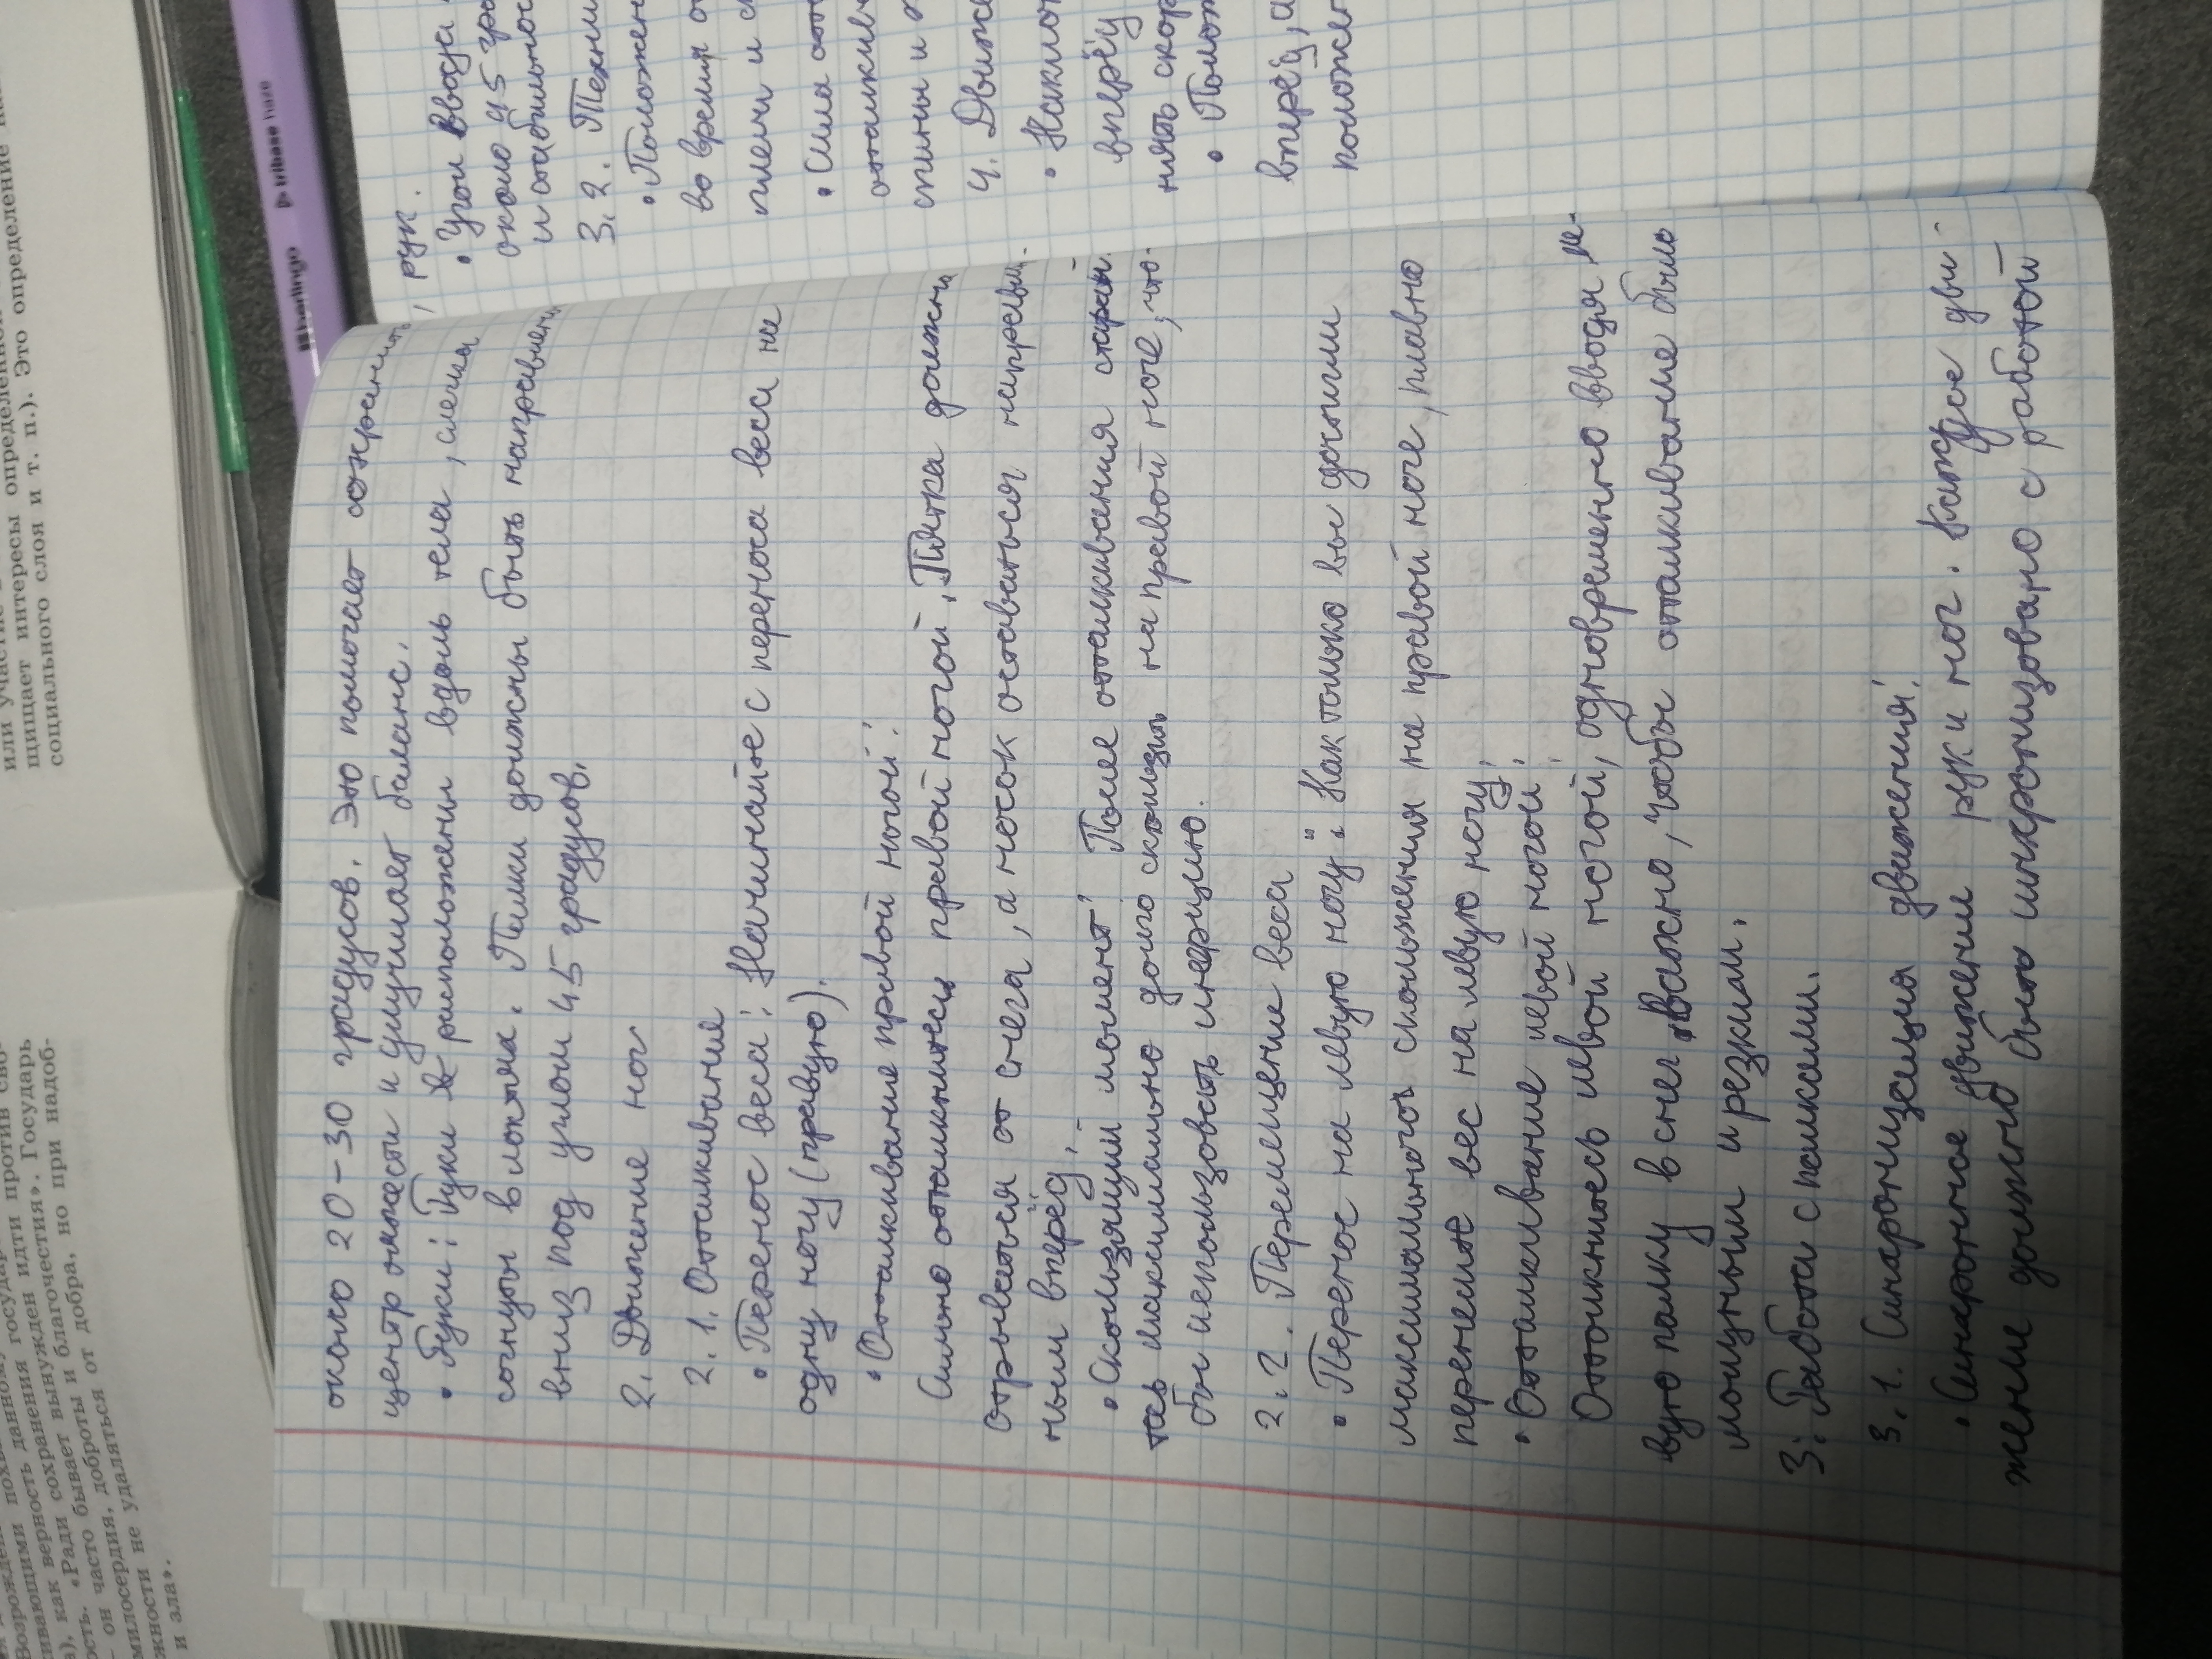 около 20-30 градусов. Это помогает сохранить
центр тяжести и улучшает баланс.
• Руки: Руки расположены вдоль тела, слегка
согнуты в локтях. Палки должны быть направлены
вниз под углом 45 градусов.
2. Движение ног
2.1. Отталкивание
• Перенос веса: Начинайте с переноса веса на
одну ногу (правую).
• Отталкивание правой ногой:
Сильно оттолкнитесь правой ногой. Пятка должна
отрываться от снега, а носок оставаться направлен-
ным вперёд.
• Скользящий момент: После отталкивания старай-
тесь максимально долго скользить на правой ноге, что-
бы использовать инерцию.
2.2. Перемещение веса
• Перенос на левую ногу: Как только вы достигли
максимального скольжения на правой ноге, плавно
перенесите вес на левую ногу.
• Отталкивание левой ногой:
Оттолкнитесь левой ногой, одновременно вводя ле-
вую палку в снег. Важно, чтобы отталкивание было
мощным и резким.
3. Работа с палками.
3.1. Синхронизация движений.
• Синхронное движение рук и ног. Каждое дви-
жение должно быть синхронизовано с работой
рук.
• Угол ввода
около 45 гра
и стабильнос
3.2. Техни
• Положен
во время о
плечи и с
• Сила отт
отталкив
спины и
4. Движе
• Наклон
вперёд
нять скор
• Полож
вперёд, а
положен
berlingo tribase haze
щищает интересы определённого
социального слоя и т. п.). Это определение
Возрожден похвальному государ
живающими дання государ идти против сво-
ность сохраненужден идти против сво-
), как вернсть сохраненуждения». Государь
ость. «Ради бывает и благочестия». Государь
он часто бывает от добра, но при надоб-
милосердия, доброты и
жности не удаляться от добра, но при надоб-
и зла».